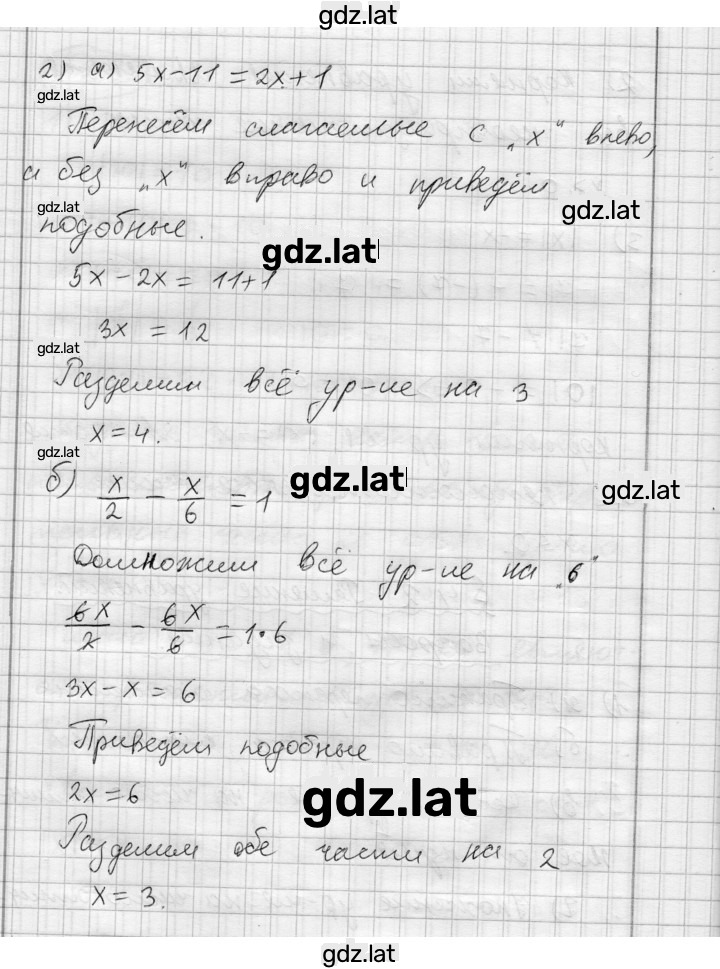 gdz.lat
2) а) 5x-11=2x+1
gdz.lat
Перенесём слагаемые с „x“ влево,
а без „x“ вправо и приведём
gdz.lat
gdz.lat
подобные.
gdz.lat
5x-2x= 11+1
3x = 12
gdz.lat
Разделим всё ур-ие на 3
x=4.
gdz.lat
б) x/2 - x/6 = 1
gdz.lat
gdz.lat
Домножим всё ур-ие на „6“
6x/2 - 6x/6 = 1•6
3x-x = 6
Приведём подобные
2x=6
gdz.lat
Разделим обе части на 2
x=3.
gdz.lat